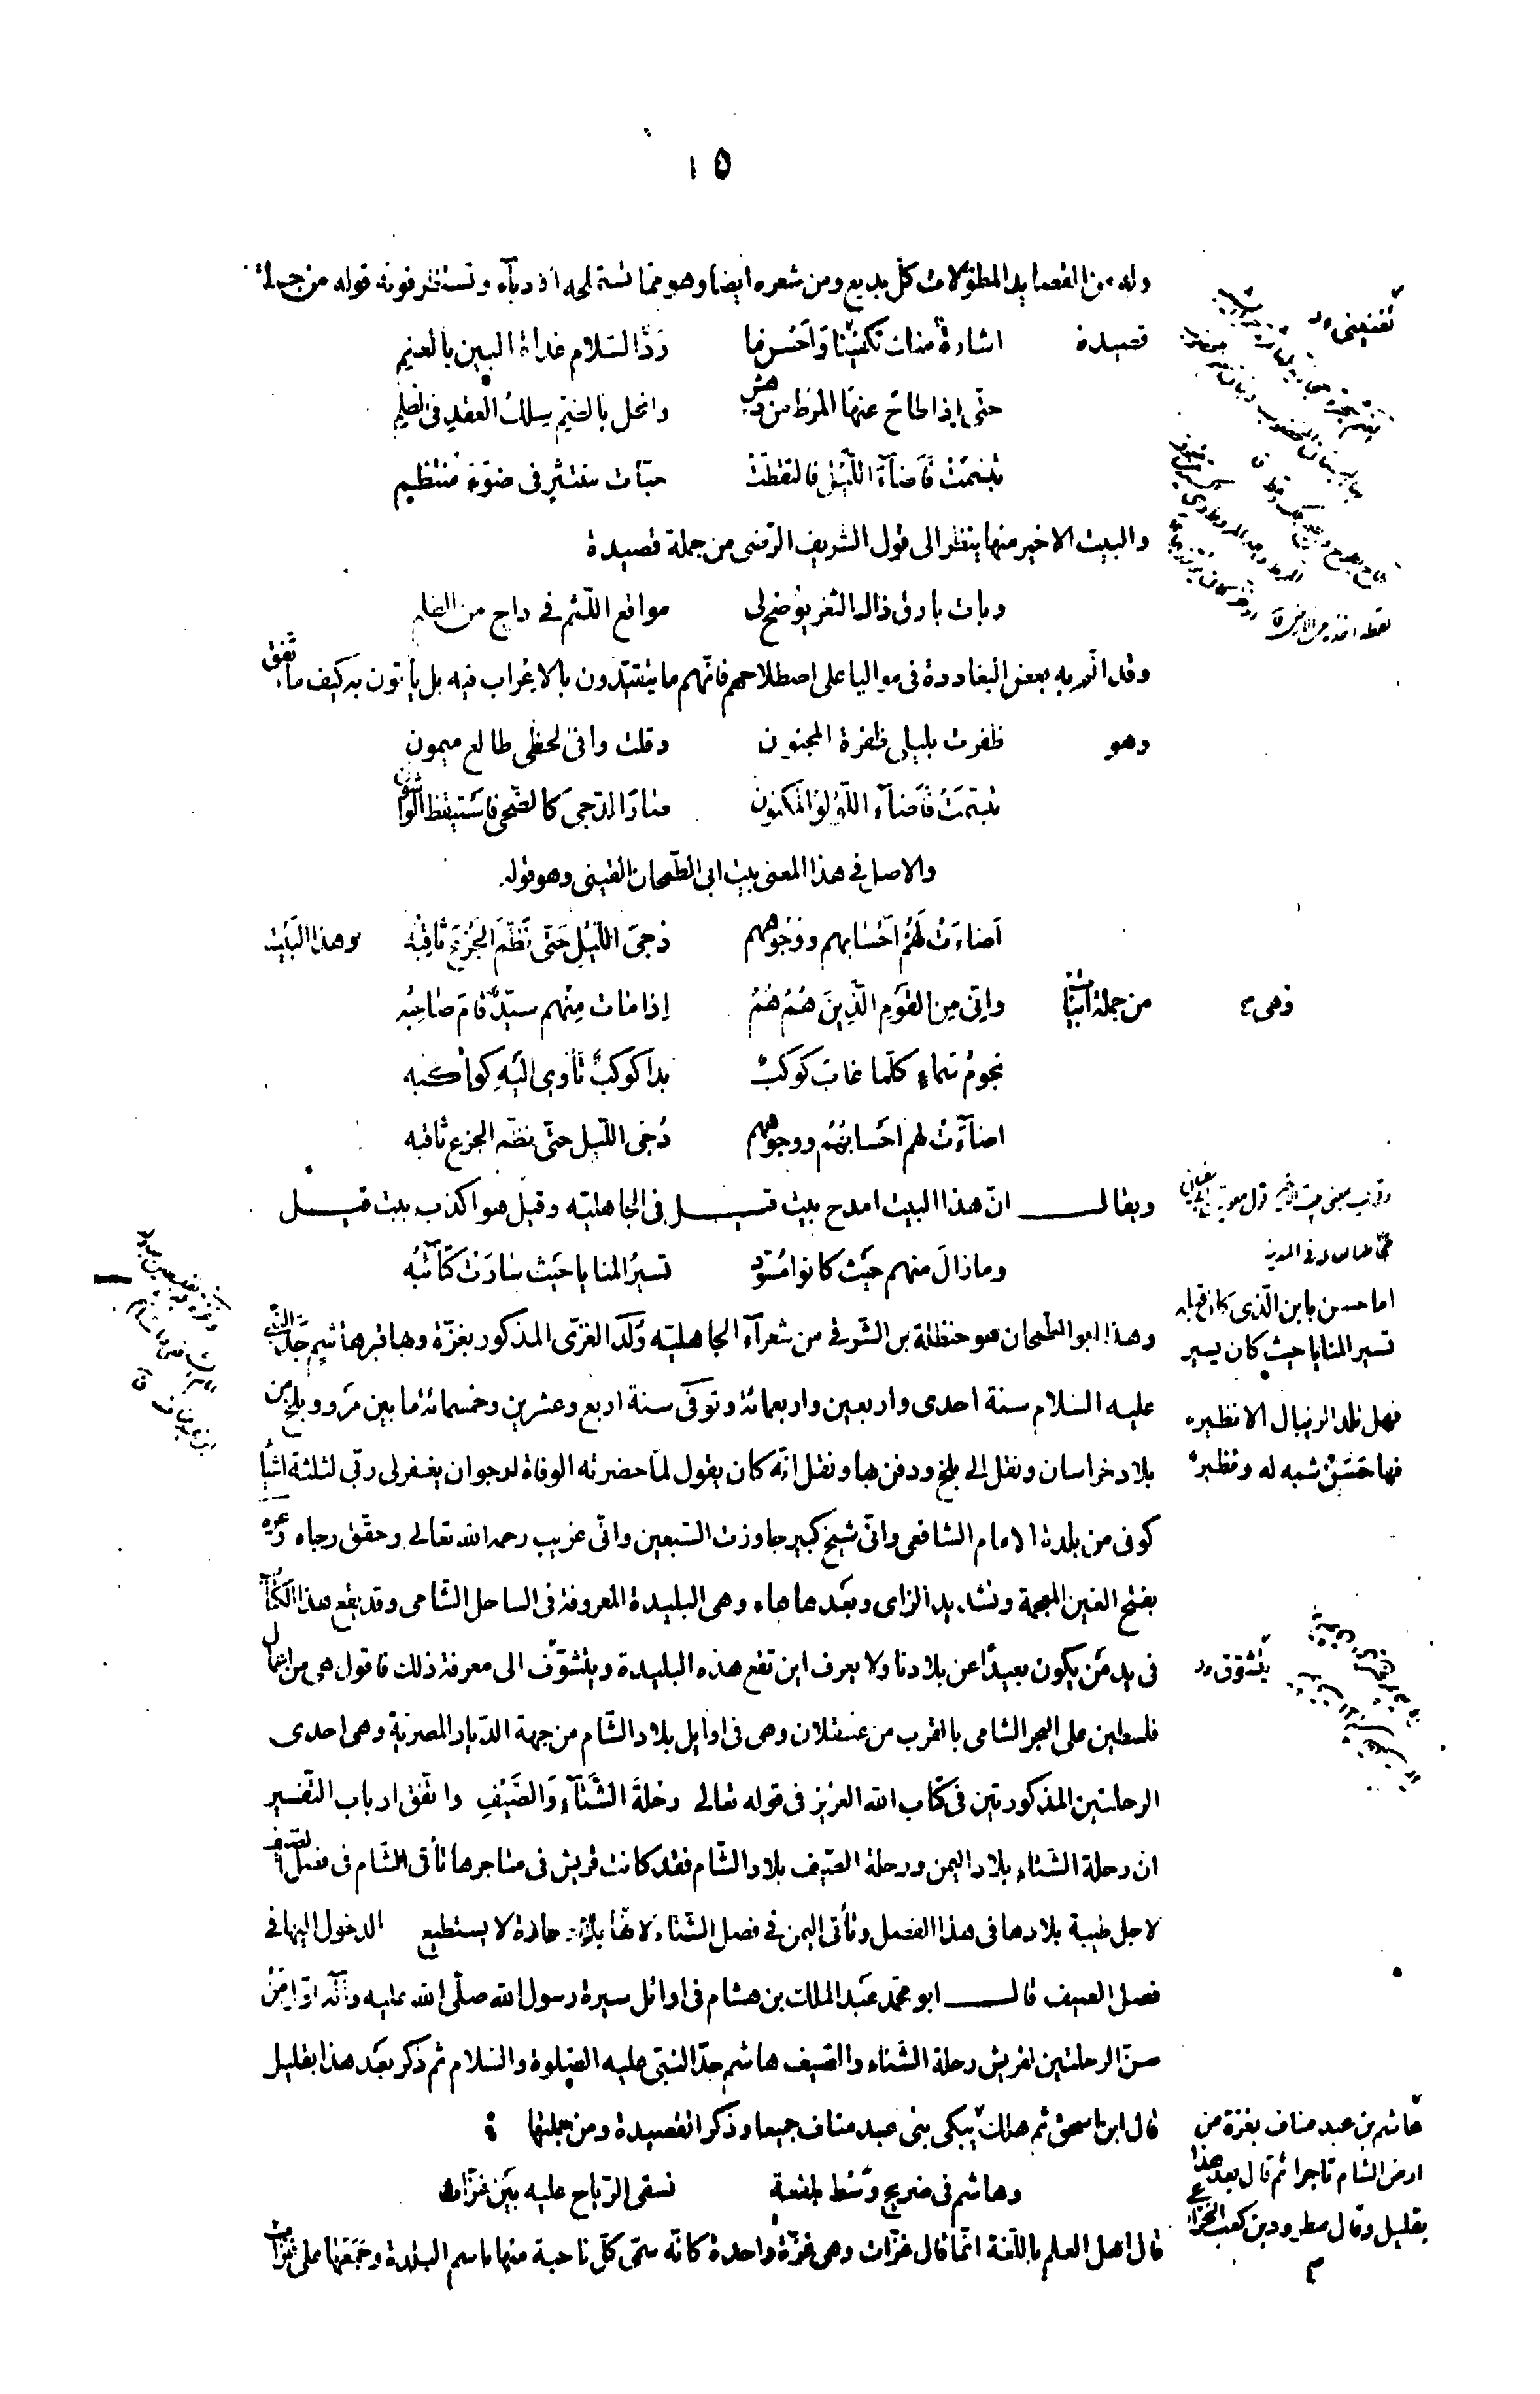 ١٥
وله من القصايد المطولات كلّ بديع ومن شعره ايضا وهو ممّا تستملحه الادبآء وتستظرفونه قوله من جملة
قصيدة اشارة منك تكفينا وَاَحْسَن ما رَدّ السّلام غداة البين بالعنم
حتّى إذا طاح عنها المرط من دهش وانحل بالضم سلك العقد فى الظلم
تبسّمت فَاَضآءَ اللّيل فالتقطت حبّات منتثر فى ضوءِ مُنتظم
والبيت الاخير منها ينظر الى قول الشريف الرّضى من جملة قصيدة
وبات بارق ذاك الثغر يوضح لى مواقع اللّثم فى داج من الظلم
وقد الم به بعض البغاددة فى مواليا على اصطلاحهم فانّهم ما يتقيّدون بالاعراب فيه بل يأتون به كيف ما اتفق
وهو ظفرت بليلى ظفرة المجنون وقلت وافى لحظى طالع ميمون
تبسّمَتْ فَأَضآء اللّؤلؤ المكنون صار الدّجى كالضّحى فاستيقظ الواشون
والاصل فى هذا المعنى بيت ابى الطّمحان القينى وهو قوله
اَضاءَتْ لَهُمْ اَحْسَابهم ووُجُوههم دُجىَ اللّيْلِ حَتّى نَظّمَ الجَزْعَ ثاقِبُهْ وهذا البَيت
من جملة ابيات وهى وإنّى مِن القوَمِ الّذِينَ هُمُ هُمُ إذا مَات مِنْهم سيّدٌ قامَ صَاحِبُه
نجومُ سَماءٍ كلّما غابَ كَوكَبٌ بدا كوكبٌ تأوى اليَهِ كواكبه
اضآءَتْ لهم احْسابهُمْ ووجوههم دُجَى اللّيل حتّى نظم الجزع ثاقبه
ويقال انّ هذا البيت امدح بيت قيل فى الجاهليّه وقيل هو اكذب بيت قيل
وما زالَ منهم حيَثُ كانوا مُسَوّد تسيرُ المنايا حيَث سارَت كتآئبُه
وهذا ابو الطمحان هو حنظلة بن الشّرقى من شعرآء الجاهليّه وَوُلّدَ الغزّى المذكور بغزّة وبها قبر هاشم جَدّ النّبى
عليه السّلام سنة احدى واربعين واربعمائة وتوفّى سنة اربع وعشرين وخمسمائة ما بين مَرو وبلخ من
بلاد خراسان ونقل الى بلخ ودفن بها ونقل انّه كان يقول لمّا حضرته الوفاة ارجو ان يغفر لى ربّى لثلثة اشيَاء
كونى من بلدة الامام الشافعى وانّى شيخ كبير جاوزت السّبعين وانّى غريب رحمه الله تعالى وحقّق رجاه وغزة
بفتح الغين المعجمة وتشديد الزاى وبَعْدها هاء وهى البليدة المعروفة فى الساحل الشّامى وقد يقع هذا الكتاب
فى يد مَن يكون بعيدًا عن بلادنا ولا يعرف اين تقع هذه البليدة ويتشوّف الى معرفة ذلك فاقول هى من اعمال
فلسطين على البحر الشامى بالقرب من عسقلان وهى فى اوايل بلاد الشّام من جهة الدّيار المصريّة وهى احدى
الرحلتين المذكورتين فى كتاب الله العزيز فى قوله تعالى رحْلةَ الشّتَآءِ وَالصَّيْفِ واتّفق ارباب التّفسير
ان رحلة الشّتاء بلاد اليمن ورحلة الصّيف بلاد الشّام فقد كانت قريش فى متاجرها تأتى الشّام فى فصل الصّيف
لاجل طيبة بلادها فى هذا الفصل وتأتى اليمن فى فصل الشّتاء لانّها بلاد حارّة لا يستطيع الدخول اليها فى
فصل الصيف قال ابو محمّد عَبْد الملك بن هشام فى اوائل سيرة رسول الله صلّى الله عليه وآله اوّل مَنْ
سنّ الرحلتين لقريش رحلة الشّتاء والصّيف هاشم جدّ النبىّ عليه الصّلوة والسّلام ثم ذكر بَعْد هذا بقليل
قال ابن اسحق ثم هلك يبكى بنى عبد مناف جميعا وذكر القصيدة ومن جملتها
وهاشم فى ضريح وَسْط بلقعة تسقى الرّياح عليه بَيْن غزّات
قال اهل العلم باللّغة انّما قال غزّات وهى غزّة واحدة كانّه سمّى كلّ ناحية منها باسم البلدة وجَمعَها على غزّات
قول معوية بن ابى سفيان
اما حسن يا ابن الّذى كان قبله
تسير المنايا حيث كان يسير
فهل تلد الرئبال الا نظيره
فها حَسَنٌ شبه له ونظيرُ
يتشوّق
هاشم بن عبد مناف بغزة من
ارض الشام تاجرا ثم قال بعد هذا
بقليل وقال مطرود بن كعب الخزاعى